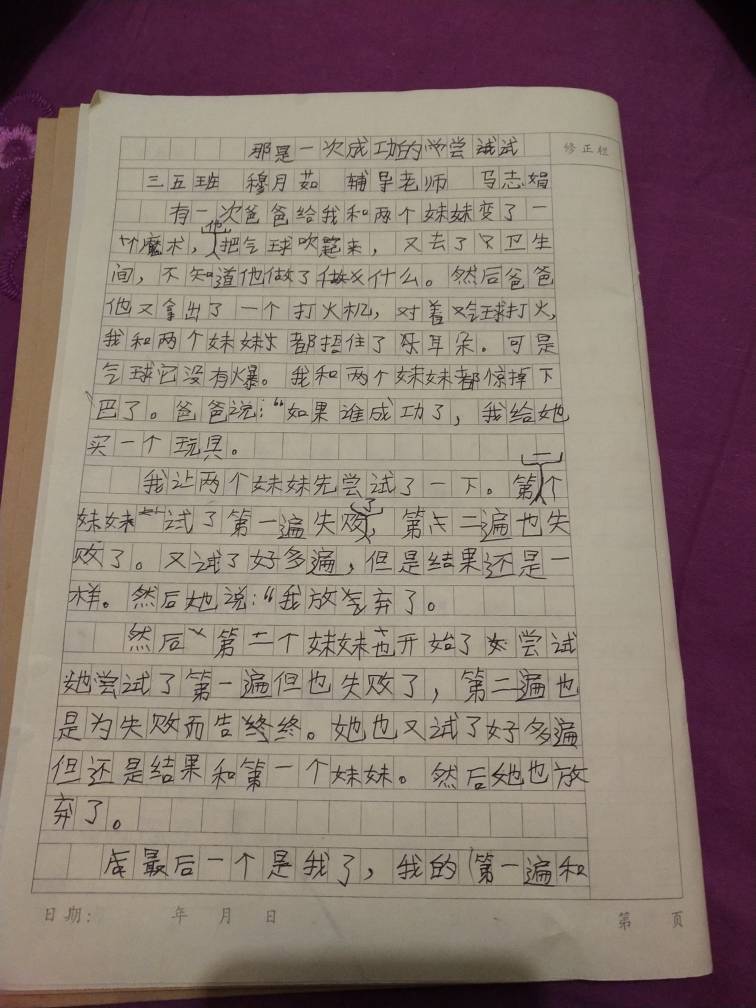 那是一次成功的尝试
修正栏
三五班 穆月茹 辅导老师 马志娟
有一次爸爸给我和两个妹妹变了一
个魔术，他把气球吹起来，又去了卫生
间，不知道他做了什么。然后爸爸
他又拿出了一个打火机，对着气球打火，
我和两个妹妹都捂住了耳朵。可是
气球它没有爆。我和两个妹妹都惊掉下
巴了。爸爸说：“如果谁成功了，我给她
买一个玩具。
我让两个妹妹先尝试了一下。第一个
妹妹试了第一遍失败了，第二遍也失
败了。又试了好多遍，但是结果还是一
样。然后她说：“我放弃了。
然后第二个妹妹也开始了尝试
她尝试了第一遍但也失败了，第二遍也
是为失败而告终。她也又试了好多遍
但还是结果和第一个妹妹。然后她也放
弃了。
最后一个是我了，我的第一遍和
日期： 年 月 日 第 页